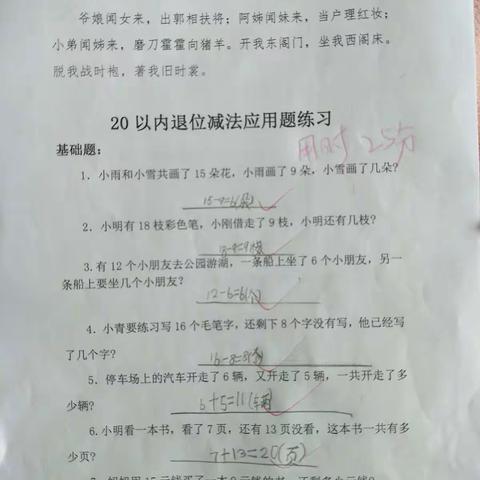 爷娘闻女来，出郭相扶将；阿姊闻妹来，当户理红妆；
小弟闻姊来，磨刀霍霍向猪羊。开我东阁门，坐我西阁床。
脱我战时袍，著我旧时裳。
20以内退位减法应用题练习
用时 25分
基础题：
1、小雨和小雪共画了15朵花，小雨画了9朵，小雪画了几朵？
15-9=6(朵)
2、小明有18枝彩色笔，小刚借走了9枝，小明还有几枝？
18-9=9(枝)
3.有12个小朋友去公园游湖，一条船上坐了6个小朋友，另一
条船上要坐几个小朋友？
12-6=6(个)
4、小青要练习写16个毛笔字，还剩下8个字没有写，他已经写
了几个字？
16-8=8(个)
5、停车场上的汽车开走了6辆，又开走了5辆，一共开走了多
少辆？
6+5=11(辆)
6.小明看一本书，看了7页，还有13页没看，这本书一共有多
少页？
7+13=20(页)